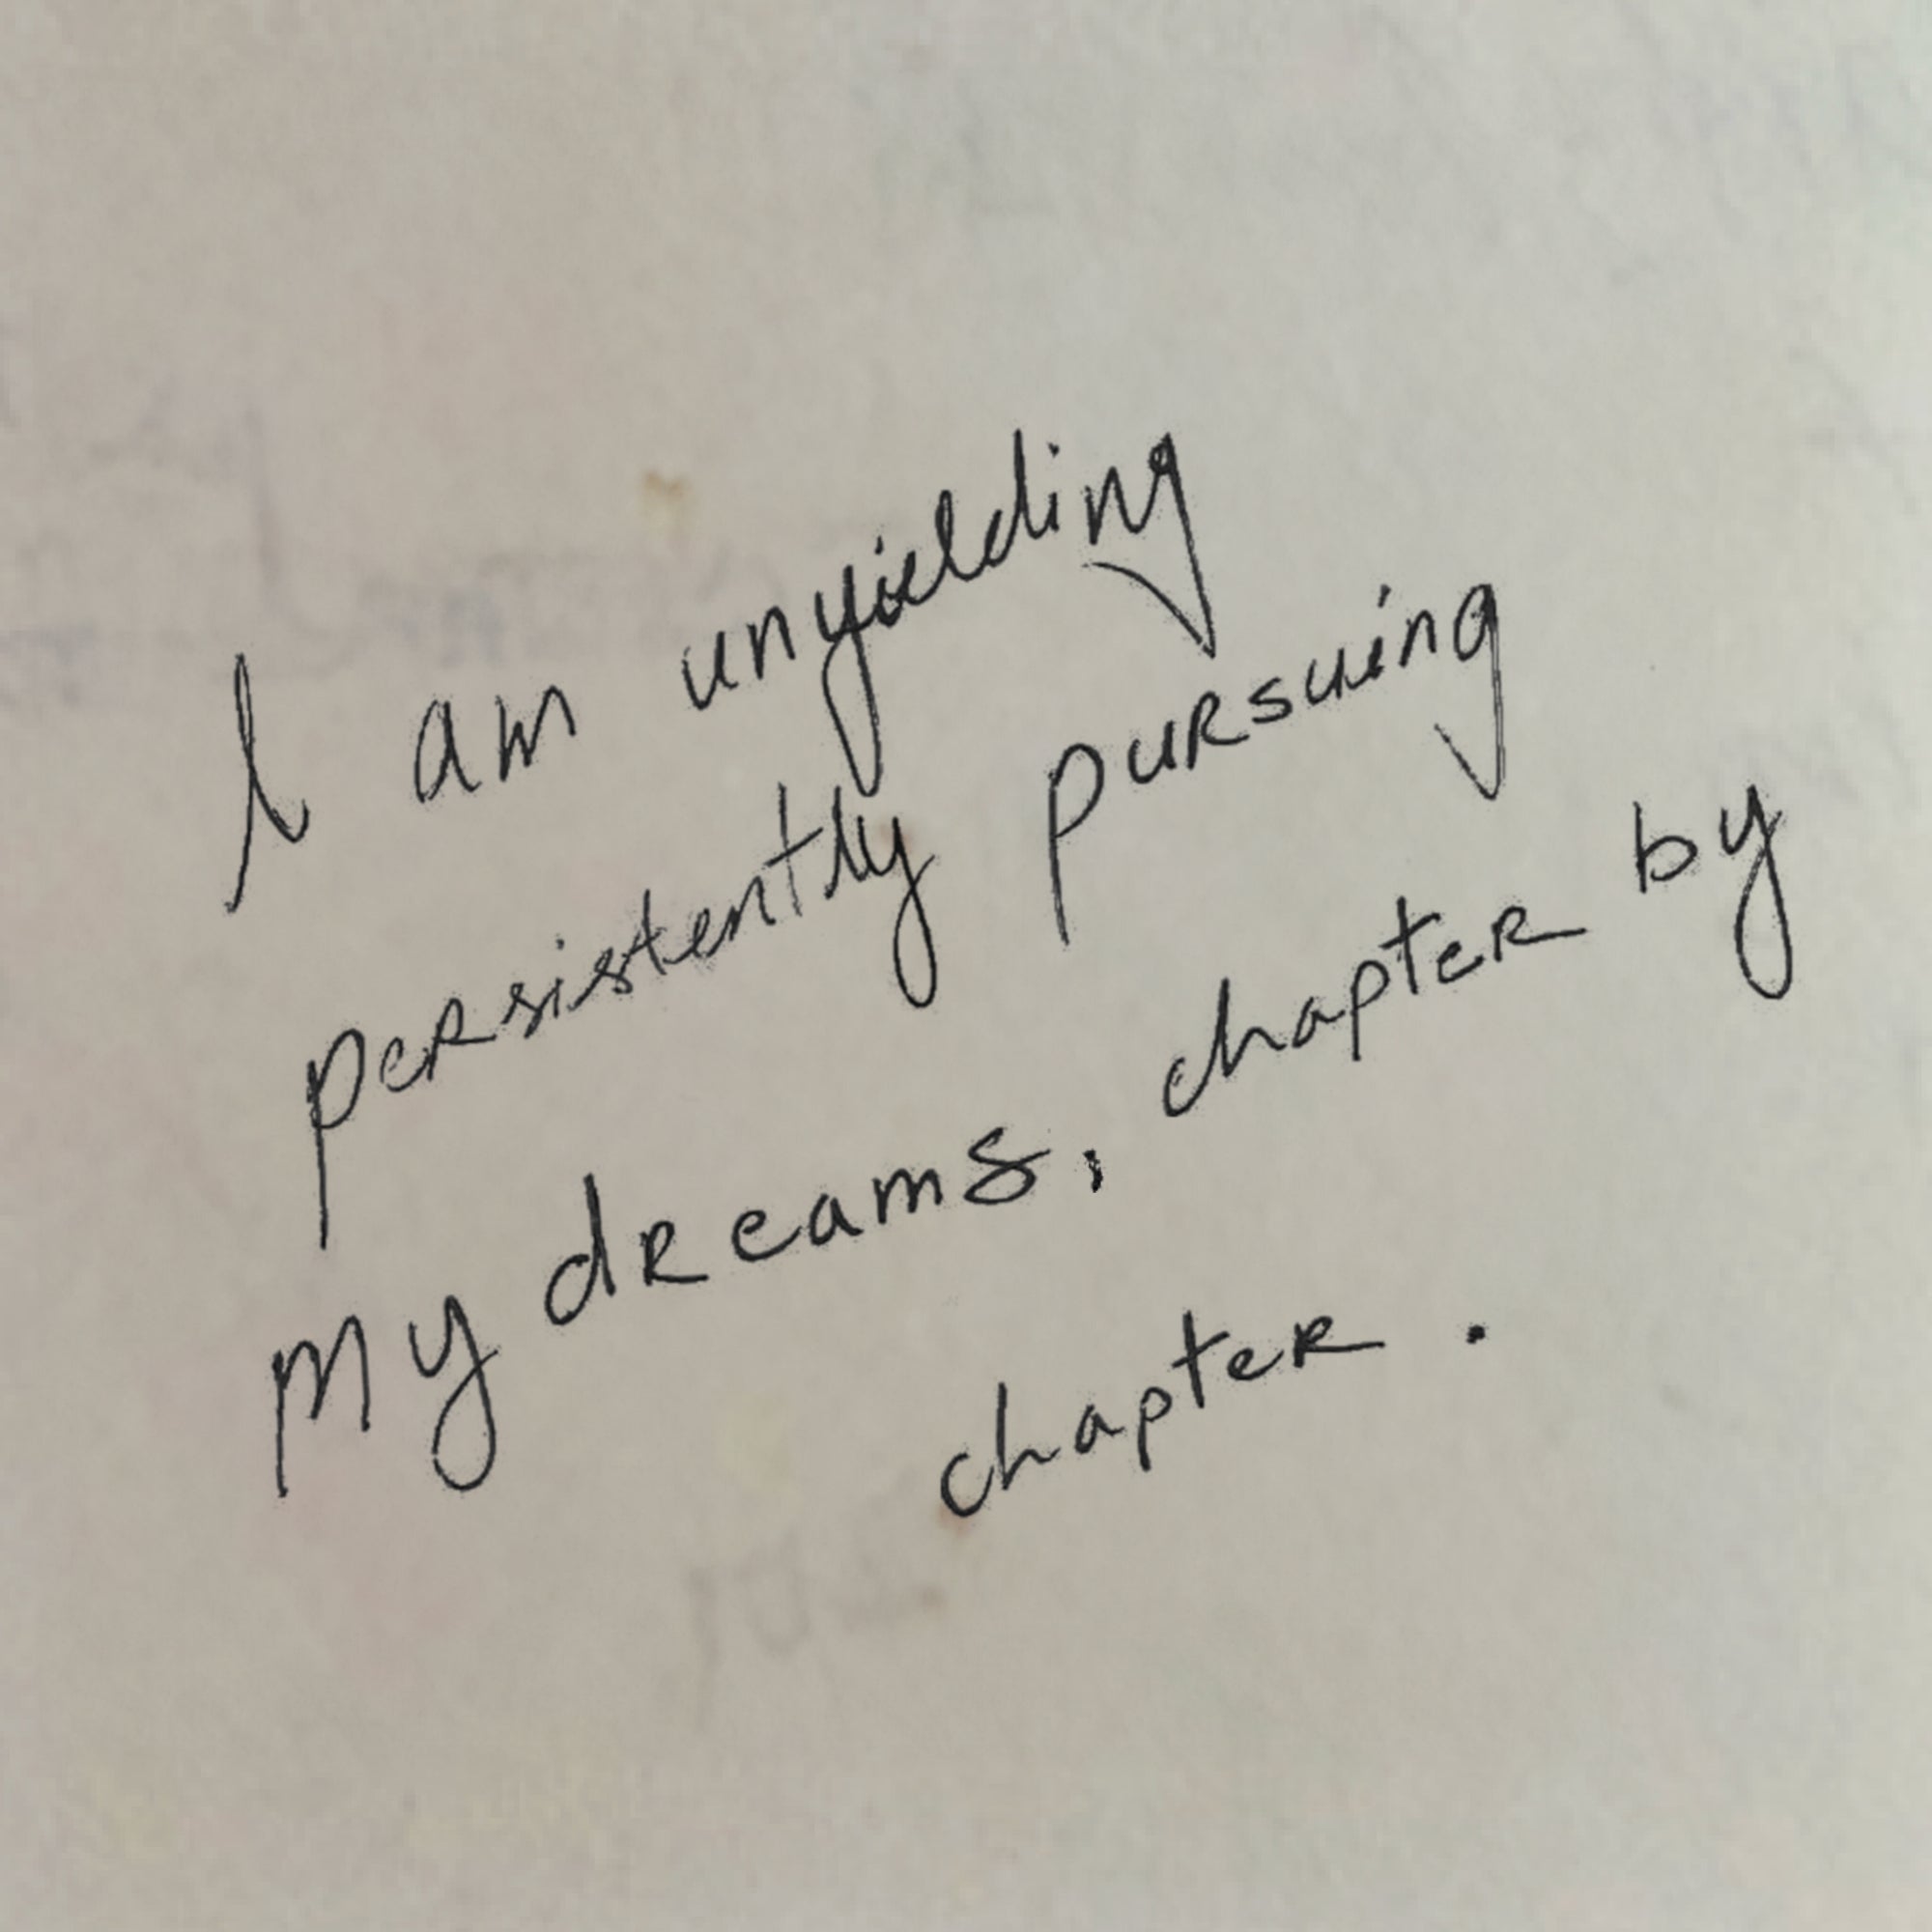 I am unyielding
persistently pursuing
my dreams, chapter by
chapter.